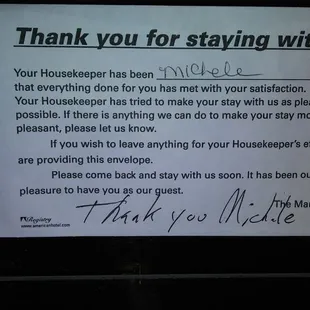 Thank you for staying wit
Your Housekeeper has been Michele
that everything done for you has met with your satisfaction.
Your Housekeeper has tried to make your stay with us as plea
possible. If there is anything we can do to make your stay mo
pleasant, please let us know.
If you wish to leave anything for your Housekeeper's ef
are providing this envelope.
Please come back and stay with us soon. It has been ou
pleasure to have you as our guest.
The Ma
Thank you Michele
Registry
www.americanhotel.com